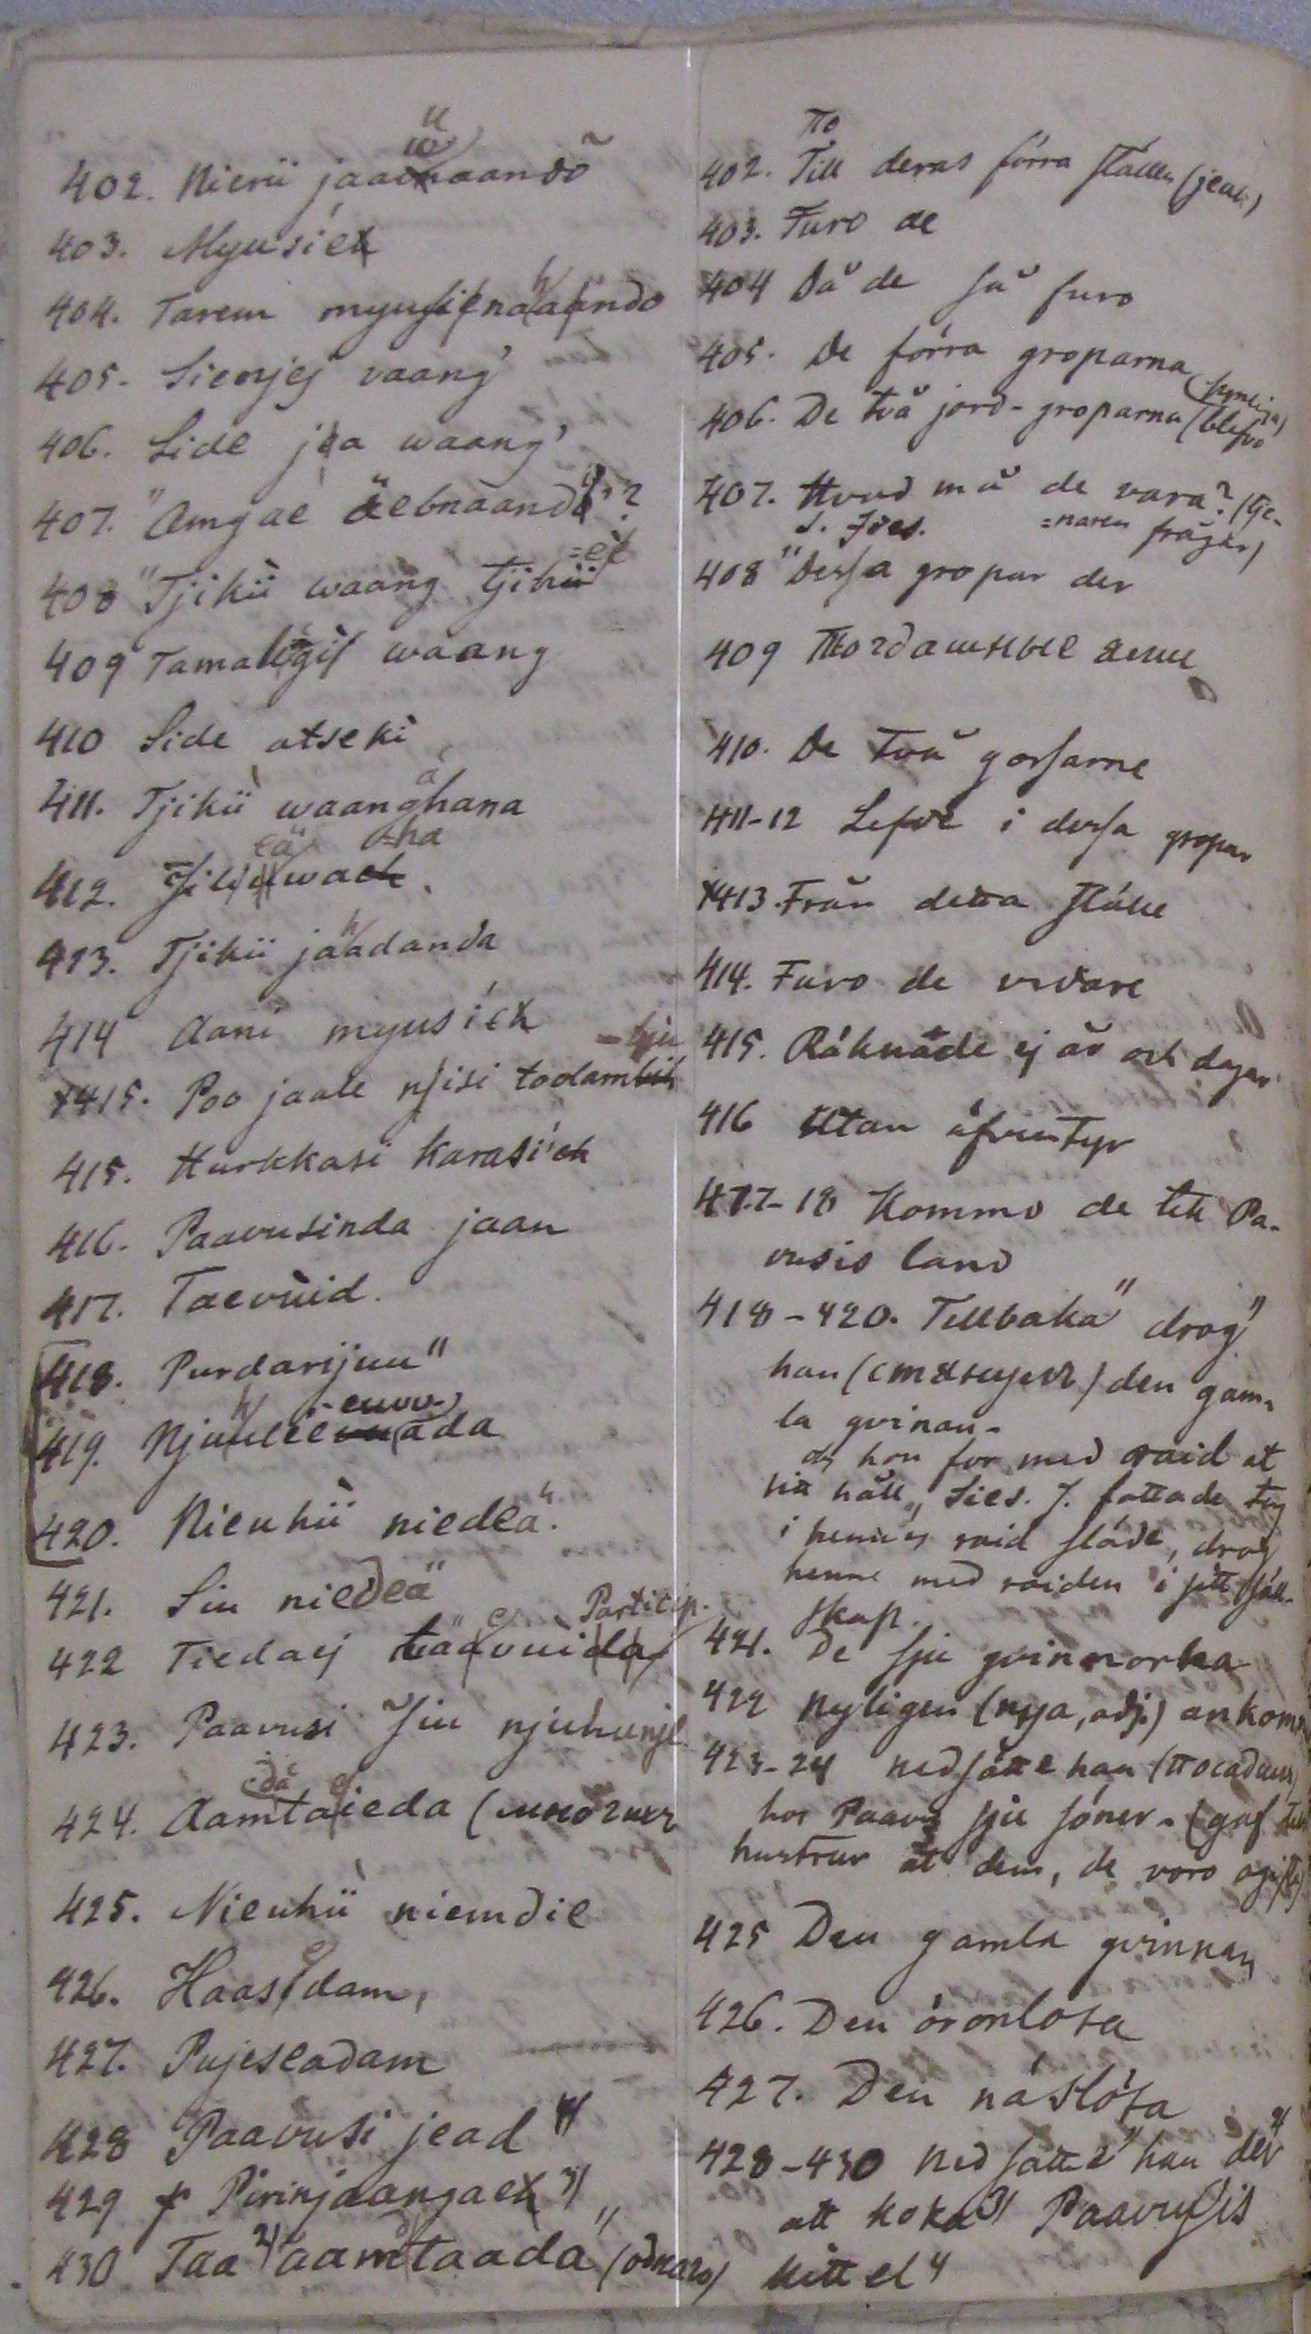 402. Nienii jaaẅnaandõ
403. Myusiek
404. Tarem myusienäaando
405. Sienjej vaang'
406. Side jea waang'
407. "Amgae äebnaandi"?
408 "Tjikii waang tjikii =ej
409 Tamalegii waang
410 Side atseki
411. Tjikii waanghana
412. Jiljewaeh
413. Tjikii jaadanda
414 Aani myusiek
415. Poo jaale njisi toolambiu
415. Hurkkasi karasi'eh
416. Paavusinda jaan
417. Taevuid.
418. Purdarijuu"
419. Njuuleeeuuvada
420. Nieuhii niedeä".
421. Siu niedeä
422 Tiedaej täävuida Particip.
423. Paavusi Siu njuhunje
424. Aamtaieda
425. Nieuhii niemdie
426. Haasidam,
427. Pujeseadam
428 Paavusi jead 4)
429 Pirinjaangaek 3)
430 Taa 2) aamtaada"
по
402. Till deras förra ställe (jealı)
403. Furo de
404 Då de så furo
405. De förra groparna
406. De två jord-groparna (blefvo synliga)
407. Hvad må de vara? (tje-
=naren frågar)
S. Jdes.
408 "Dessa gropar der
409
410. De två gossarne
411-12 Lefde i dessa gropar
413. Från detta ställe
414. Furo de vidare
415. Räknade ej år och dagar
416 Utan äfventyr
417-18 Kommo de till Pa-
vusis land
418-420. Tillbaka" drog"
han den gam-
la qvinan-
och hon for med raid at
hit håll, Sies. J. fattade tag
i hennes raid släde, drog
henne med raiden i sitt säll-
skap.
421. De sju qvinnorna
422 nyligen (nya, adj.) ankomn
423-24 nedsatte han
hos Paavus sju söner - (gaf till
hustrur åt dem, de voro ogifte)
425 Den gamla qvinnan
426. Den öronlösa
427. Den näslösa
428-430 nedsatte" han der 2)
att koka 3) Paavusis
kittel 4